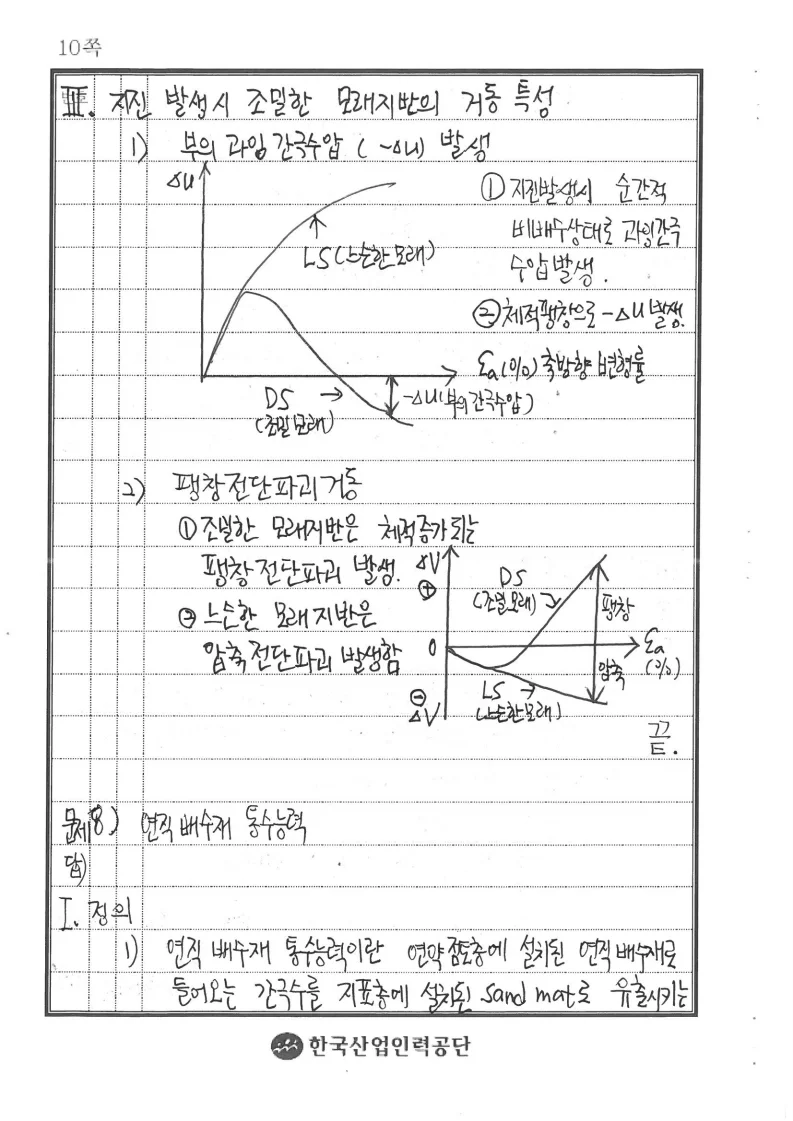 10쪽
Ⅲ. 지진 발생시 조밀한 모래지반의 거동 특성
1) 부의 과잉간극수압 (-Δu) 발생
Δu
LS(느슨한 모래)
① 지진발생시 순간적
비배수상태로 과잉간극
수압발생.
② 체적팽창으로 -Δu 발생.
εa(%) 축방향 변형률
DS →
(조밀모래)
-Δu(부의 간극수압)
2) 팽창전단파괴거동
① 조밀한 모래지반은 체적증가되는
팽창전단파괴 발생.
② 느슨한 모래지반은
압축전단파괴 발생함
ΔV
⊕
DS
(조밀모래)
팽창
0
εa
(%)
압축
⊖
ΔV
LS →
(느슨한모래)
끝.
문제8) 연직배수재 통수능력
답)
Ⅰ. 정의
1) 연직배수재 통수능력이란 연약점토층에 설치된 연직배수재로
들어오는 간극수를 지표층에 설치된 sand mat로 유출시키는
한국산업인력공단